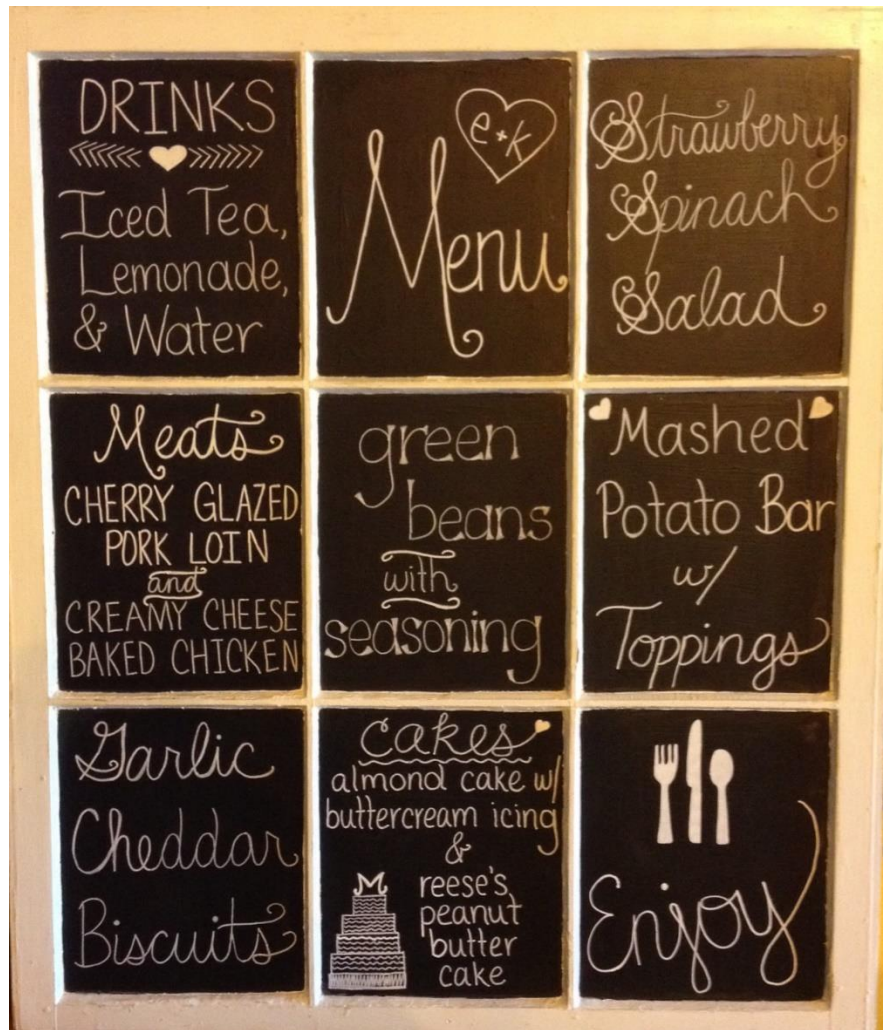 DRINKS
Iced Tea,
Lemonade,
& Water
e+k
Menu
Strawberry
Spinach
Salad
Meats
CHERRY GLAZED
PORK LOIN
and
CREAMY CHEESE
BAKED CHICKEN
green
beans
with
seasoning
Mashed
Potato Bar
w/
Toppings
Garlic
Cheddar
Biscuits
cakes
almond cake w/
buttercream icing
&
reese's
peanut
butter
cake
Enjoy